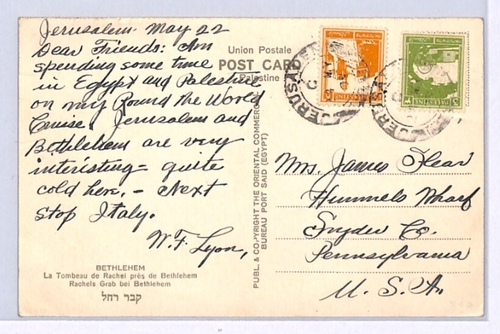 Jerusalem. May 22
Dear Friends: Am
spending some time
in Egypt and Palestine
on my Round the World
Cruise. Jerusalem and
Bethlehem are very
interesting - quite
cold here. - Next
stop Italy.
W. F. Lyon,
BETHLEHEM
La Tombeau de Rachel près de Bethlehem
Rachels Grab bei Bethlehem
קבר רחל
Union Postale
POST CARD
Palestine
PUBL. & COPYRIGHT THE ORIENTAL COMMERCIAL
BUREAU PORT SAID (EGYPT)
JERUSA
JERUSA
Mrs. James
Hummels Wharf
Snyder Co.
Pennsylvania
U. S. A.